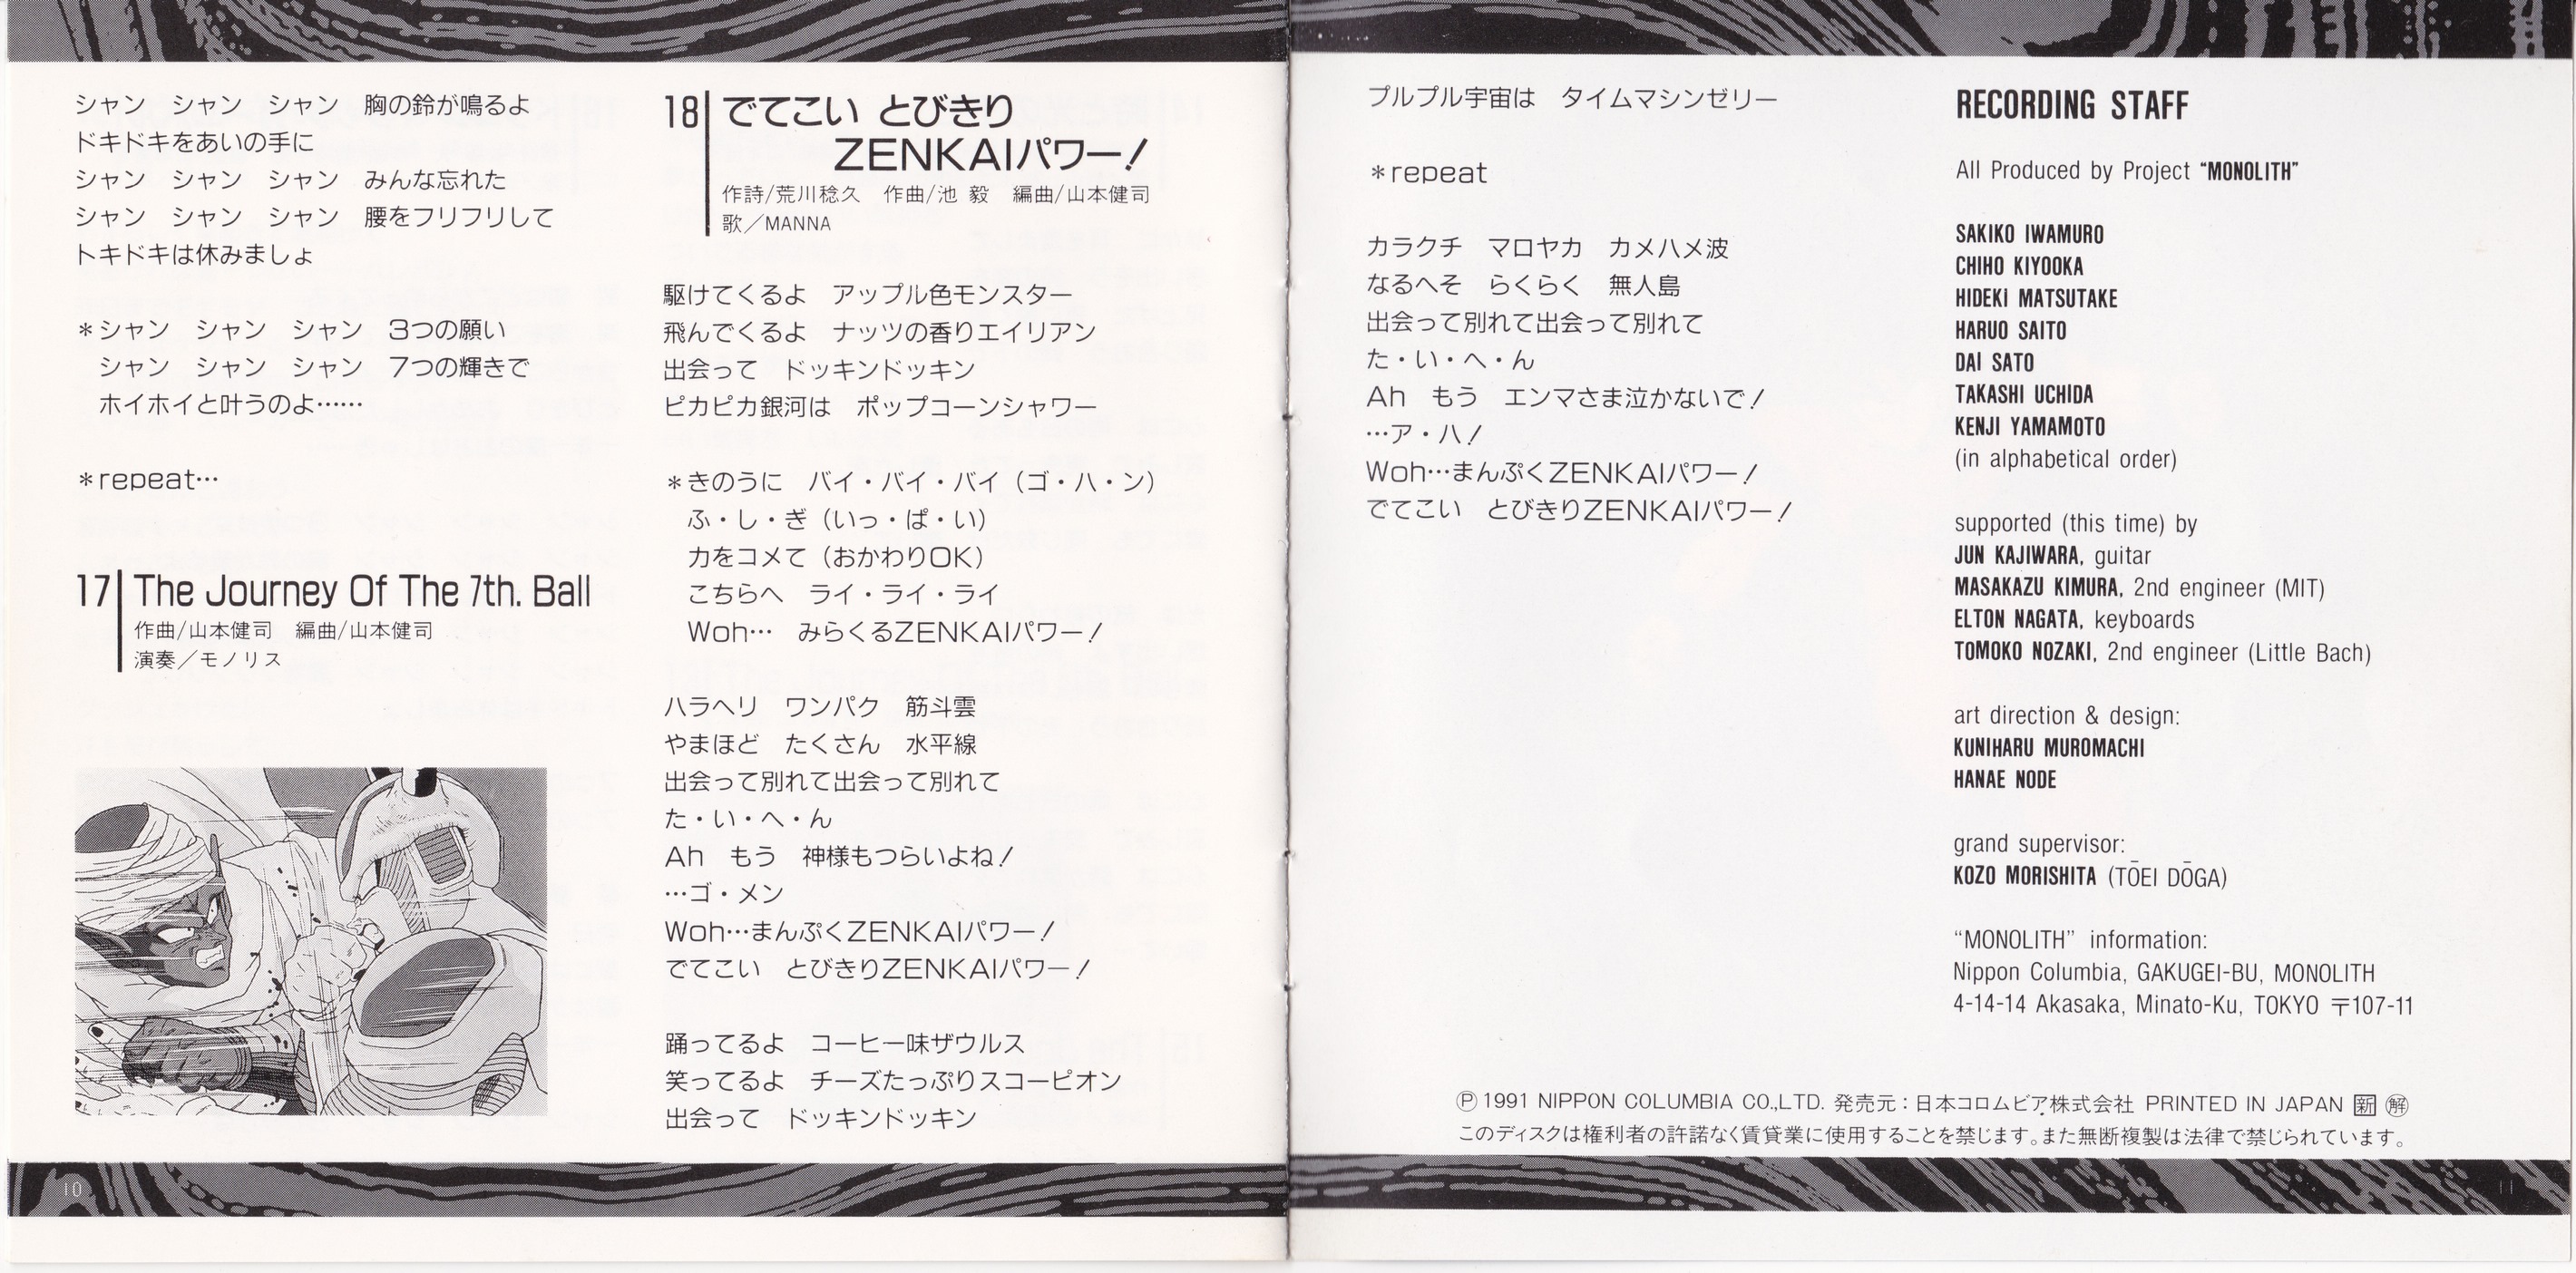 シャン　シャン　シャン　胸の鈴が鳴るよ
ドキドキをあいの手に
シャン　シャン　シャン　みんな忘れた
シャン　シャン　シャン　腰をフリフリして
トキドキは休みましょ
＊シャン　シャン　シャン　3つの願い
シャン　シャン　シャン　7つの輝きで
ホイホイと叶うのよ……
＊repeat…
17 The Journey Of The 7th. Ball
作曲/山本健司　編曲/山本健司
演奏／モノリス
10
18 でてこい とびきり
ZENKAIパワー!
作詩/荒川稔久　作曲/池 毅　編曲/山本健司
歌／MANNA
駆けてくるよ　アップル色モンスター
飛んでくるよ　ナッツの香りエイリアン
出会って　ドッキンドッキン
ピカピカ銀河は　ポップコーンシャワー
＊きのうに　バイ・バイ・バイ（ゴ・ハ・ン）
ふ・し・ぎ（いっ・ぱ・い）
力をコメて（おかわりOK）
こちらへ　ライ・ライ・ライ
Woh…　みらくるZENKAIパワー!
ハラヘリ　ワンパク　筋斗雲
やまほど　たくさん　水平線
出会って別れて出会って別れて
た・い・へ・ん
Ah　もう　神様もつらいよね!
…ゴ・メン
Woh…まんぷくZENKAIパワー!
でてこい　とびきりZENKAIパワー!
踊ってるよ　コーヒー味ザウルス
笑ってるよ　チーズたっぷりスコーピオン
出会って　ドッキンドッキン
プルプル宇宙は　タイムマシンゼリー
＊repeat
カラクチ　マロヤカ　カメハメ波
なるへそ　らくらく　無人島
出会って別れて出会って別れて
た・い・へ・ん
Ah　もう　エンマさま泣かないで!
…ア・ハ!
Woh…まんぷくZENKAIパワー!
でてこい　とびきりZENKAIパワー!
RECORDING STAFF
All Produced by Project “MONOLITH”
SAKIKO IWAMURO
CHIHO KIYOOKA
HIDEKi MATSUTAKE
HARUO SAITO
DAI SATO
TAKASHI UCHIDA
KENJI YAMAMOTO
(in alphabetical order)
supported (this time) by
JUN KAJIWARA, guitar
MASAKAZU KIMURA, 2nd engineer (MIT)
ELTON NAGATA, keyboards
TOMOKO NOZAKI, 2nd engineer (Little Bach)
art direction & design:
KUNIHARU MUROMACHI
HANAE NODE
grand supervisor:
KOZO MORISHITA (TŌEI DŌGA)
“MONOLITH” information:
Nippon Columbia, GAKUGEI-BU, MONOLITH
4-14-14 Akasaka, Minato-Ku, TOKYO 〒107-11
Ⓟ 1991 NIPPON COLUMBIA CO.,LTD. 発売元：日本コロムビア株式会社 PRINTED IN JAPAN 新 解
このディスクは権利者の許諾なく賃貸業に使用することを禁じます。また無断複製は法律で禁じられています。
11